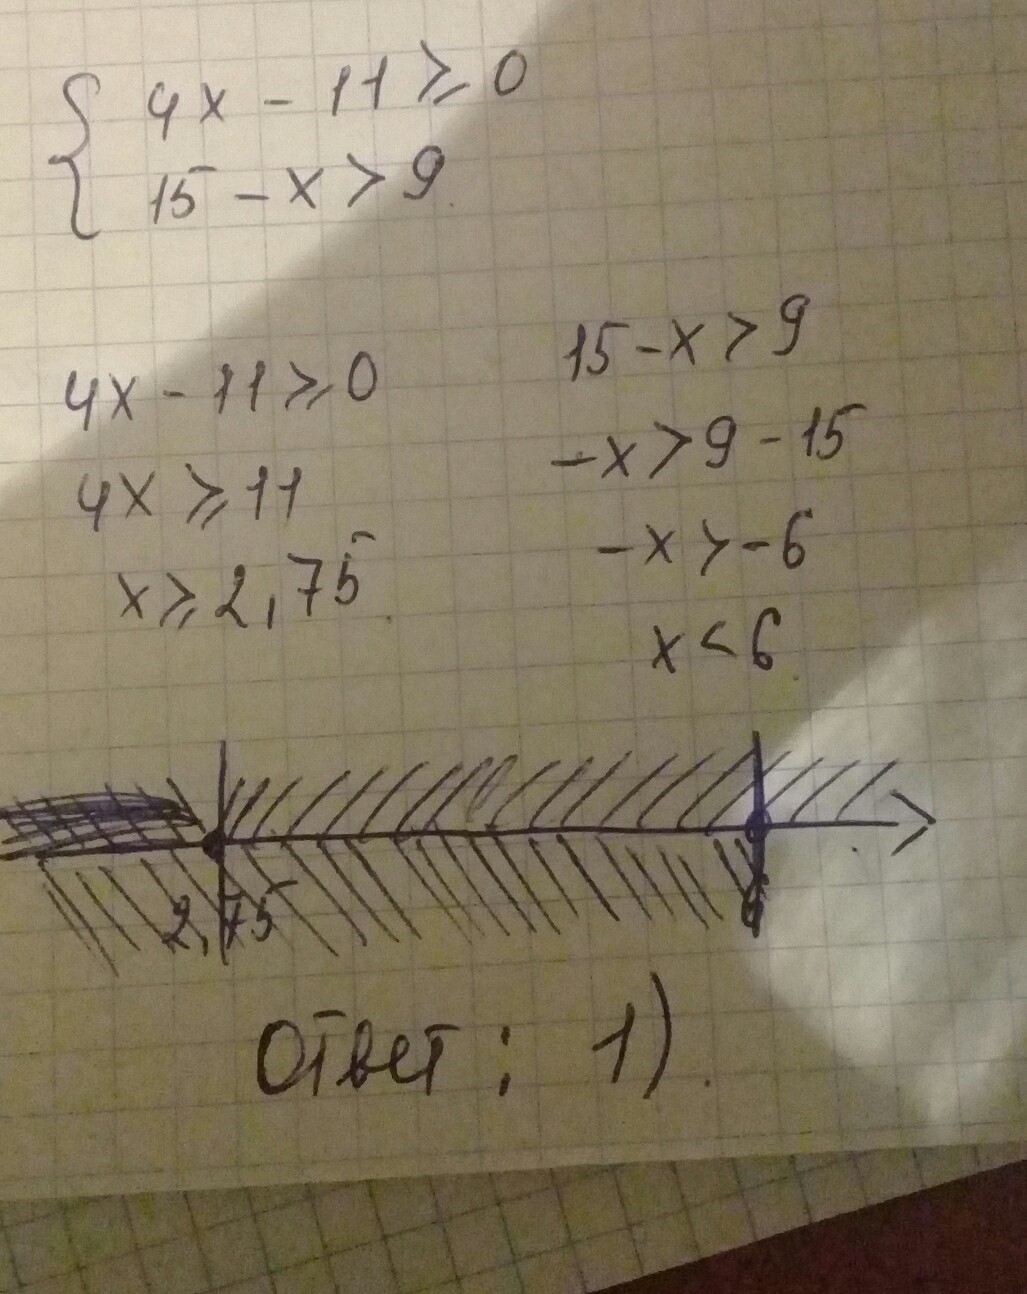 4x - 11 ≥ 0
15 - x > 9
4x - 11 ≥ 0
4x ≥ 11
x ≥ 2,75
15 - x > 9
-x > 9 - 15
-x > -6
x < 6
2,75
6
Ответ: 1).